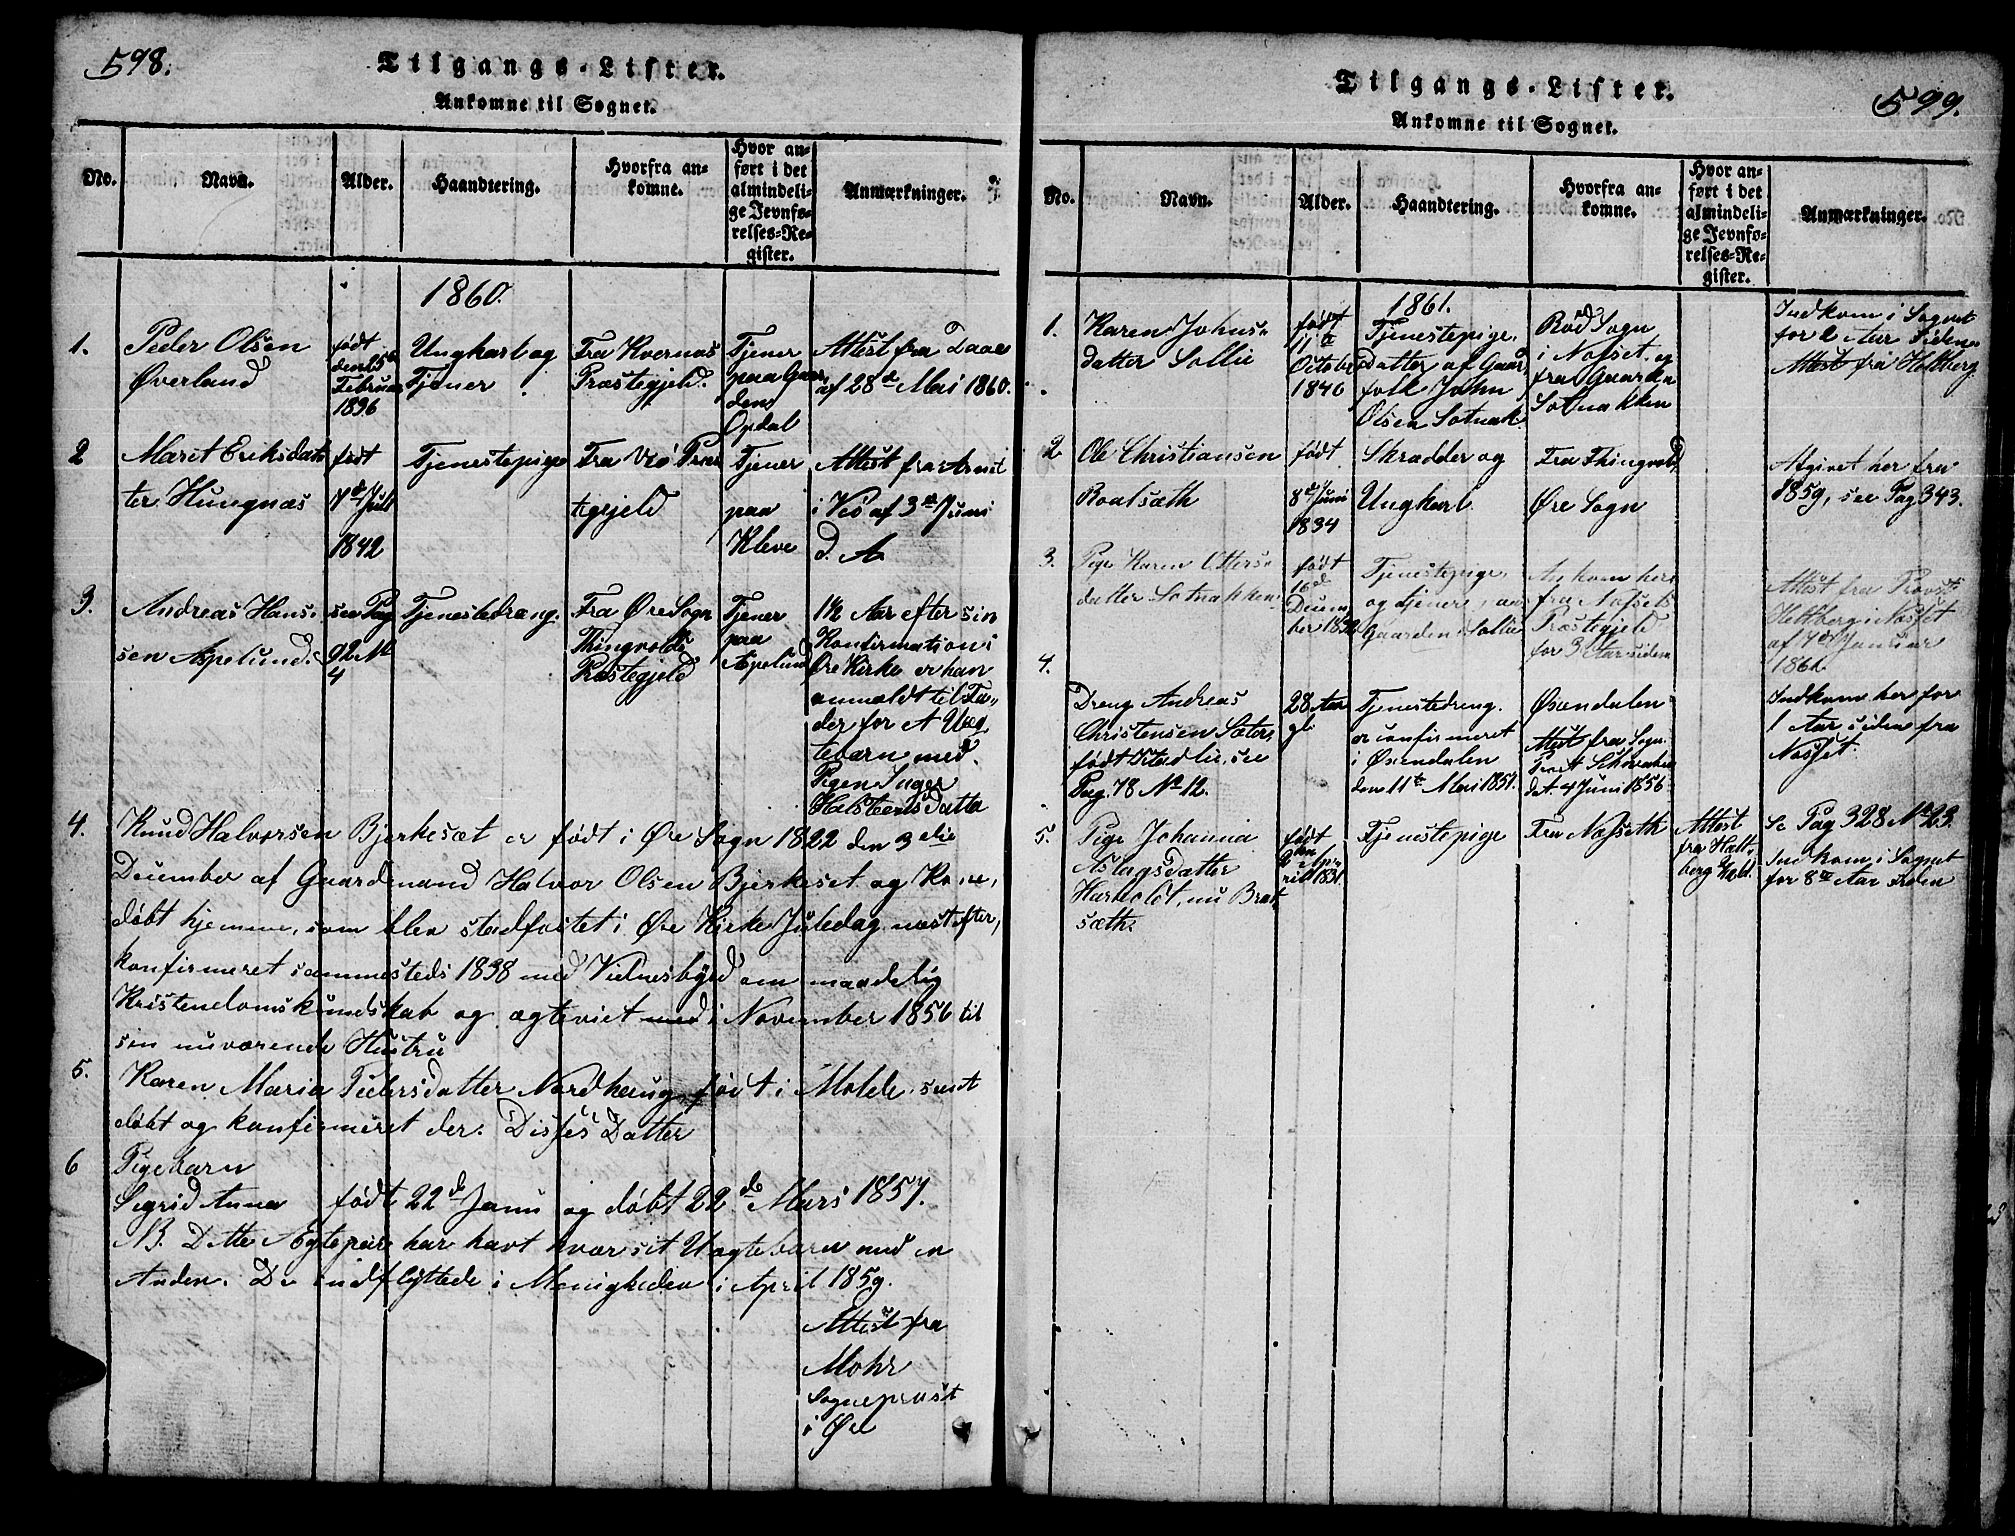 598.
Tilgangs-Lister.
Ankomne til Sognet.
No. Navn. Alder. Haandtering. Hvorfra ankomne. Hvor anført i det almindelige Jevnførelses-Register. Anmærkninger.
1860.
1.
Peder Olsen
Øverland
født
Februar
1836
Ungkarl og
Tjener
Fra Kvernæs
Præstegjeld.
Tjener
paa Gaar
den
Opdal
Attest fra Daae
af 28de Mai 1860.
2
Maret Eriksdat
ter Hungnæs
født
7de Juli
1842
Tjenestepige
Fra Veø Præs
tegjeld
Tjener
paa
Kleve
Attest fra
i Veø af 3de Juni
d. A.
3.
Andreas Hans-
sen Aspelund.
see Pag
92 No
4
Tjenestedreng.
Fra Øre Sogn
Thingvolds
Præstegjeld
Tjener
paa
Aspelund
1½ Aar efter sin
Konfirmation i
Øre Kirke er han
anmældt til Fa-
der for et Uæg
tebarn med
Pigen Inger
Halsteensdatter
4.
Knud Halvorsen Bjerkesæt er født i Øre Sogn 1822 den 3die
December af Gaardmand Halvor Olsen Bjerkeset og Kone,
døbt hjemme, som blev stadfæstet i Øre Kirke Juledag næst efter,
konfirmeret sammesteds 1838 med Vidnesbyrd om maadelig
Kristendomskundskab og ægteviet med i November 1856 til
sin nuværende Hustru
5.
Karen Maria Pedersdatter Nordhaug født i Molde samt
døbt og konfirmeret der. Disses Datter
6
Pigebarn
Sigrid Anna født 22de Janu og døbt 22de Mars 1857.
NB. Dette Ægtepar har havt hvær sit Uægtebarn med en
Anden. De indflyttede i Menigheden i April 1859.
Attest fra
Mohr
Sogneprest
i Øre
599.
Tilgangs-Lister.
Ankomne til Sognet.
No. Navn. Alder. Haandtering. Hvorfra ankomne. Hvor anført i det almindelige Jevnførelses-Register. Anmærkninger.
1861.
1.
Karen Johns-
datter Sollie
født
11te
October
1840
Tjenestepige,
datter af Gaard
folk John
Olsen Sotnak.
Rød Sogn
i Nøsset og
fra Gaarden
Sotnakken
Indkom i Sognet
for 2 Aar siden.
Attest fra Holtberg
2
Ole Christiansen
Roalsæth
født
8de Juni
1834
Skrædder og
Ungkarl
Fra Thingvold
Øre Sogn
Afgivet her fra
1859, see Pag 343.
3.
Pige Karen Otters-
datter Sotnakken
født
16de
Decem
ber 1838
Tjenestepige,
og tjener paa
Gaarden Sollie
Ankom her
fra Nøssets
Præstegjeld
for 3 Aar siden
Attest fra Provst
Holtberg i Nøsset
af 7de Januar
1861.
4.
Dreng Andreas
Christensen Sæter,
født see
Pag. 78 No 12.
28 Aar
gl.
Tjenestedreng.
er confirmeret
i Øxendalen
den 11te Mai 1851.
Øxendalen
Attest fra Sogne
Præst
dat 4 Juni 1856
Indkom her for
1 Aar siden fra
Nøsset.
5.
Pige Johanna
Aslagsdatter
nu Brat
sæth.
født
2den Ap-
ril 1831.
Tjenestepige
Fra Nøsseth
Attest
fra Holt-
berg
Se Pag 328 No 23.
Indkom i Sognet
for 8te Aar siden